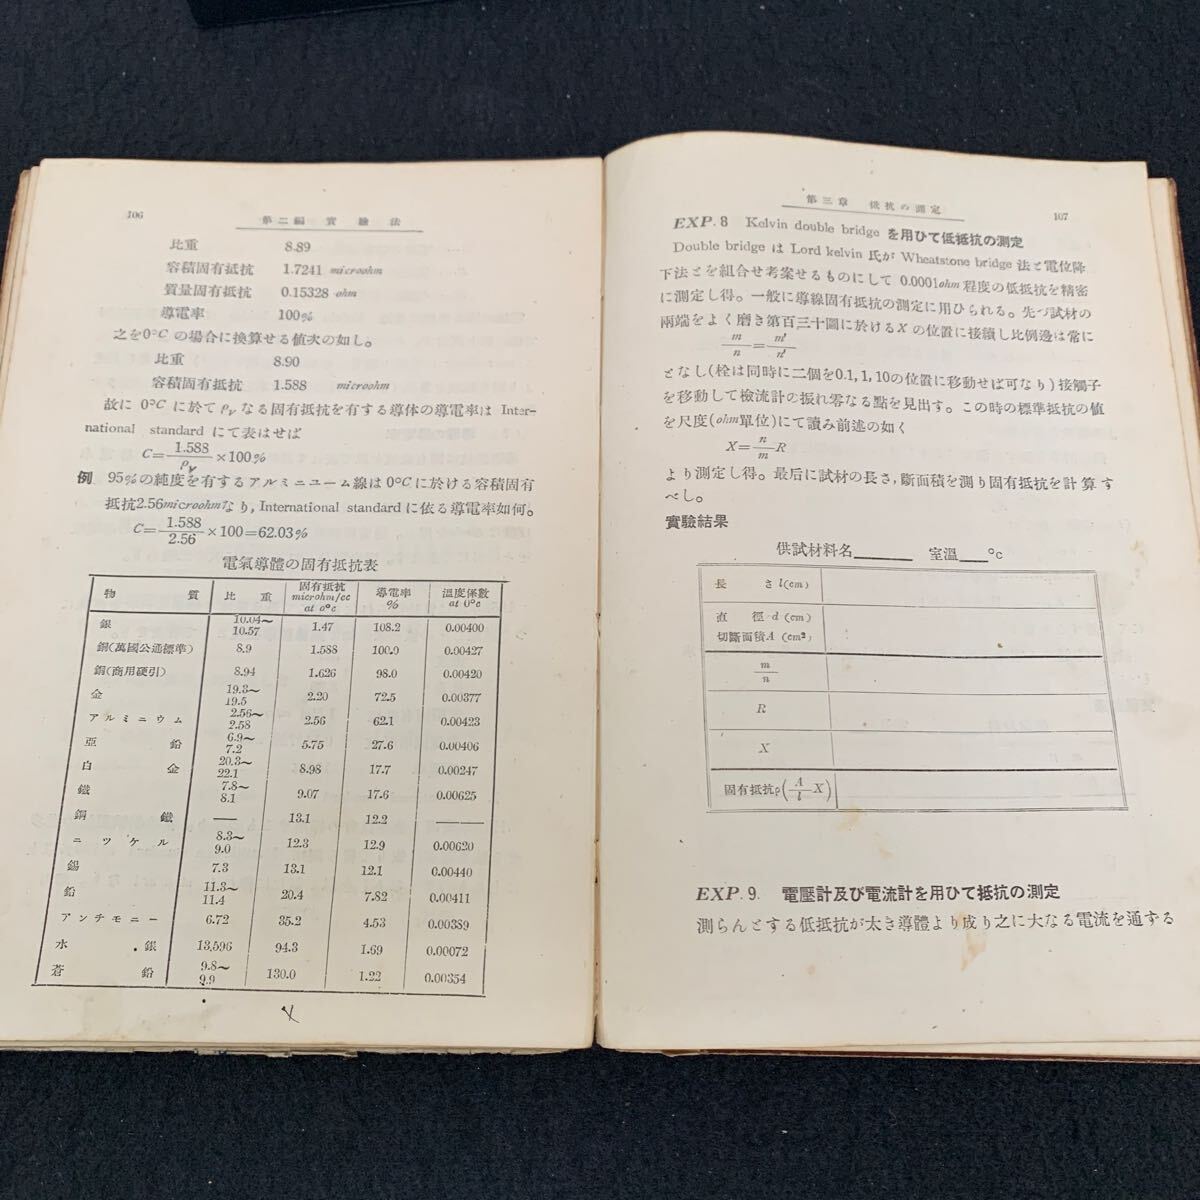 106
第二編 實驗法
比重 8.89
容積固有抵抗 1.7241 microohm
質量固有抵抗 0.15328 ohm
導電率 100%
之を0°C の場合に換算せる値次の如し。
比重 8.90
容積固有抵抗 1.588 microohm
故に 0°C に於て ρv なる固有抵抗を有する導体の導電率は Inter-
national standard にて表はせば
C=1.588/ρv×100%
例 95%の純度を有するアルミニユーム線は0°Cに於ける容積固有
抵抗2.56microohmなり, International standard に依る導電率如何。
C=1.588/2.56×100=62.03%
電氣導體の固有抵抗表
物質 比重 固有抵抗 microhm/cc at 0°c 導電率 % 溫度係數 at 0°c
銀 10.04~10.57 1.47 108.2 0.00400
銅(萬國公通標準) 8.9 1.588 100.0 0.00427
銅(商用硬引) 8.94 1.626 98.0 0.00420
金 19.3~19.5 2.20 72.5 0.00377
アルミニウム 2.56~2.58 2.56 62.1 0.00423
亞鉛 6.9~7.2 5.75 27.6 0.00406
白金 20.3~22.1 8.98 17.7 0.00247
鐵 7.8~8.1 9.07 17.6 0.00625
鋼鐵 — 13.1 12.2 —
ニツケル 8.3~9.0 12.3 12.9 0.00620
錫 7.3 13.1 12.1 0.00440
鉛 11.3~11.4 20.4 7.82 0.00411
アンチモニー 6.72 35.2 4.53 0.00389
水銀 13,596 94.3 1.69 0.00072
蒼鉛 9.8~9.9 130.0 1.22 0.00354
第三章 抵抗の測定
107
EXP. 8 Kelvin double bridge を用ひて低抵抗の測定
Double bridge は Lord kelvin 氏が Wheatstone bridge 法と電位降
下法とを組合せ考案せるものにして 0.0001ohm 程度の低抵抗を精密
に測定し得。一般に導線固有抵抗の測定に用ひられる。先づ試材の
兩端をよく磨き第百三十圖に於ける X の位置に接續し比例邊は常に
m/n=m'/n'
となし(栓は同時に二個を0.1, 1, 10の位置に移動せば可なり)接觸子
を移動して檢流計の振れ零なる點を見出す。この時の標準抵抗の値
を尺度(ohm單位)にて讀み前述の如く
X=n/m R
より測定し得。最后に試材の長さ,斷面積を測り固有抵抗を計算す
べし。
實驗結果
供試材料名______ 室溫___°c
長さ l(cm)
直徑 d (cm)
切斷面積 A (cm²)
m/n
R
X
固有抵抗ρ(A/l X)
EXP. 9. 電壓計及び電流計を用ひて抵抗の測定
測らんとする低抵抗が太き導體より成り之に大なる電流を通ずる